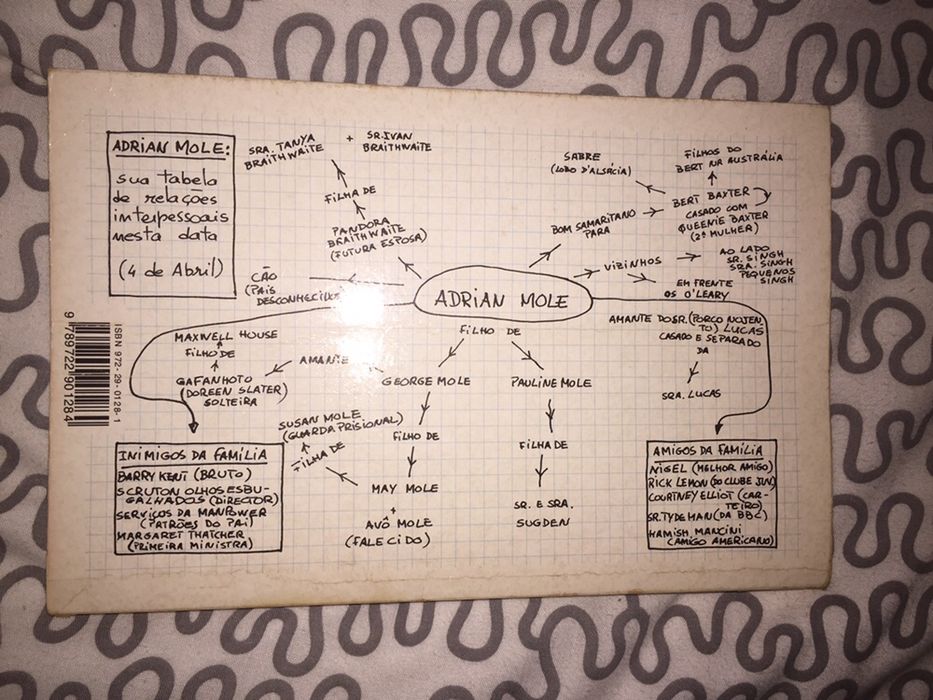 ADRIAN MOLE:
sua tabela
de relações
interpessoais
nesta data
(4 de Abril)
SRA. TANYA
BRAITHWAITE
+ SR. IVAN
BRAITHWAITE
FILHA DE
PANDORA
BRAITHWAITE
(FUTURA ESPOSA)
SABRE
(LOBO D'ALSÁCIA)
FILHOS DO
BERT NA AUSTRÁLIA
BERT BAXTER
CASADO COM
QUEENIE BAXTER
(2ª MULHER)
BOM SAMARITANO
PARA
VIZINHOS
AO LADO
SR. SINGH
SRA. SINGH
PEQUENOS
SINGH
EM FRENTE
OS O'LEARY
CÃO
(PAIS
DESCONHECIDOS
ADRIAN MOLE
FILHO DE
AMANTE DO SR. (PORCO NOJEN
TO) LUCAS
CASADO E SEPARADO
DA
SRA. LUCAS
MAXWELL HOUSE
FILHO DE
GAFANHOTO
(DOREEN SLATER)
SOLTEIRA
AMANTE
GEORGE MOLE
PAULINE MOLE
SUSAN MOLE
(GUARDA PRISIONAL)
FILHA DE
FILHO DE
FILHA DE
MAY MOLE
+
AVÔ MOLE
(FALECIDO)
SR. E SRA.
SUGDEN
ISBN 972-29-0128-1
9 789722 901284
INIMIGOS DA FAMÍLIA
BARRY KENT (BRUTO)
SCRUTON OLHOS ESBU-
GALHADOS (DIRECTOR)
SERVIÇOS DA MANPOWER
(PATRÕES DO PAI)
MARGARET THATCHER
(PRIMEIRA MINISTRA)
AMIGOS DA FAMÍLIA
NIGEL (MELHOR AMIGO)
RICK LEMON (DO CLUBE JUV.)
COURTNEY ELLIOT (CAR-
TEIRO)
SR. TYDEMAN (DA BBC)
HAMISH MANCINI
(AMIGO AMERICANO)